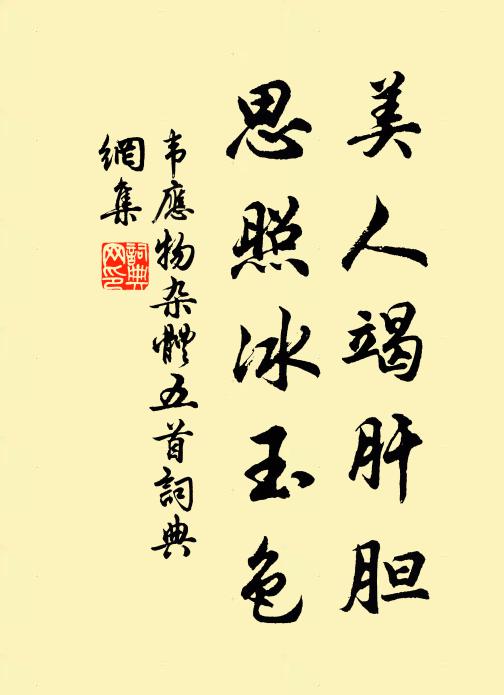 美人竭肝胆
思照冰玉色
韦應物杂體五首詞典
網集
詞典
网印